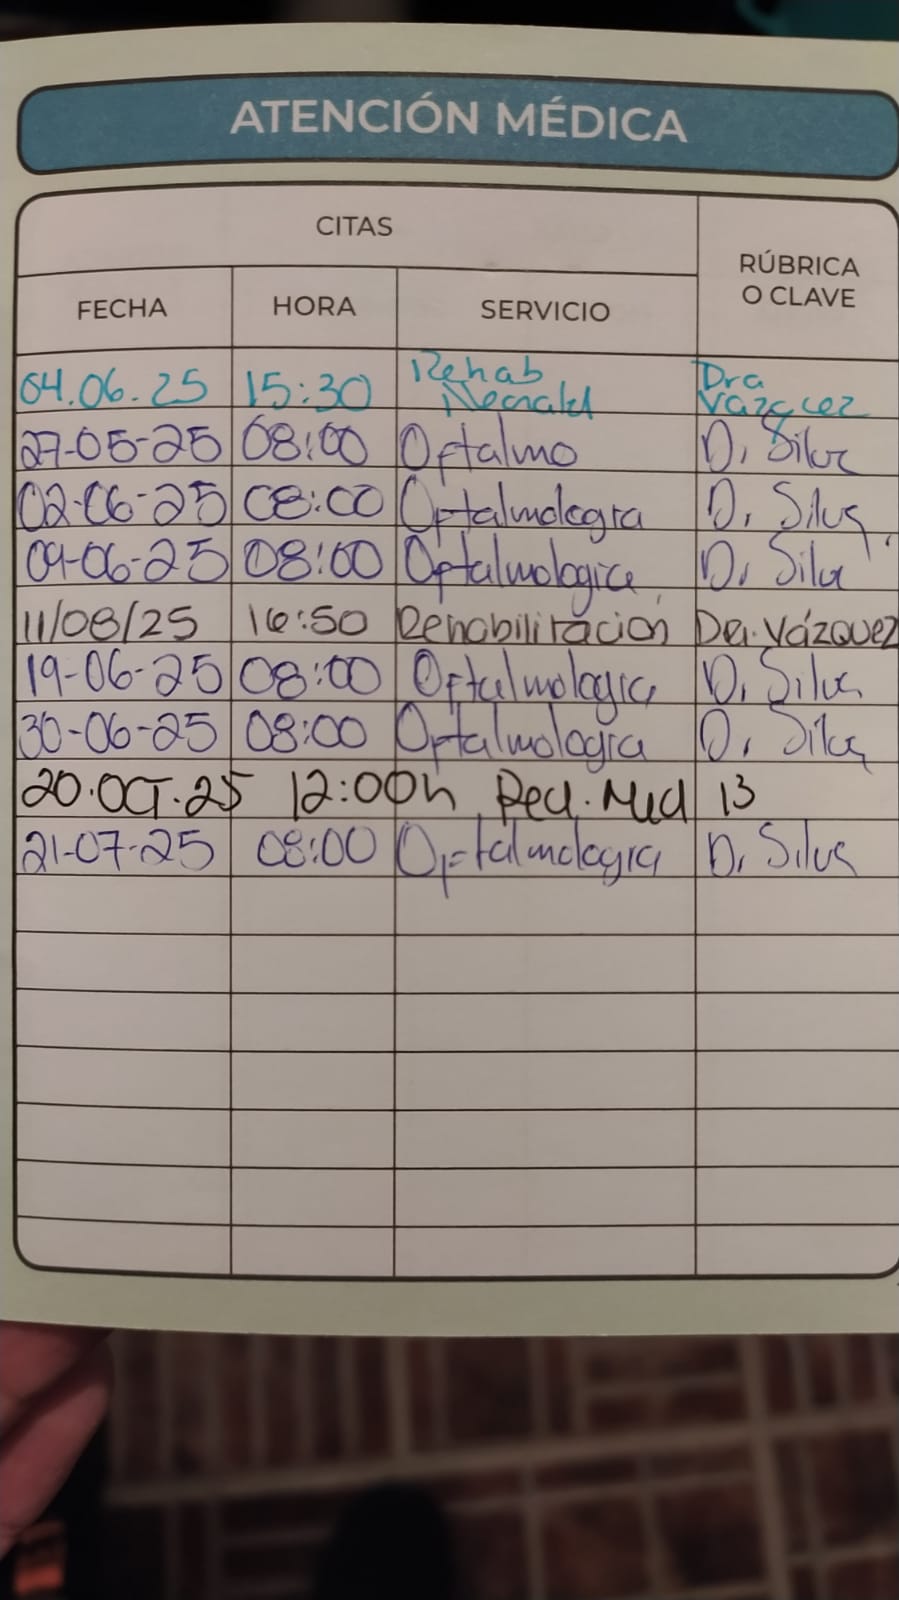 ATENCIÓN MÉDICA
CITAS
RÚBRICA
O CLAVE
FECHA HORA SERVICIO
04.06.25 15:30 Rehab Neonald Dra Vázquez
27-05-25 08:00 Oftalmo D. Silva
02-06-25 08:00 Oftalmologia D. Silva
09-06-25 08:00 Oftalmologia D. Silva
11/08/25 16:50 Rehabilitación Dra. Vázquez
19-06-25 08:00 Oftalmologia D. Silva
30-06-25 08:00 Oftalmologia D. Silva
20.OCT.25 12:00h Ped. Med 13
21-07-25 08:00 Oftalmologia D. Silva